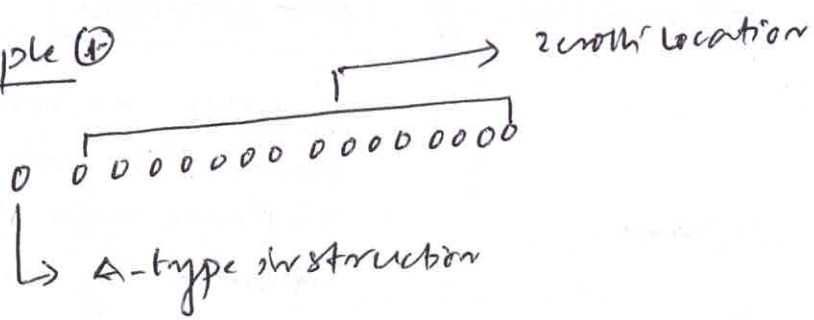 ple ①
zeroth location
0 0 0 0 0 0 0 0 0 0 0 0 0 0 0 0
A-type instruction